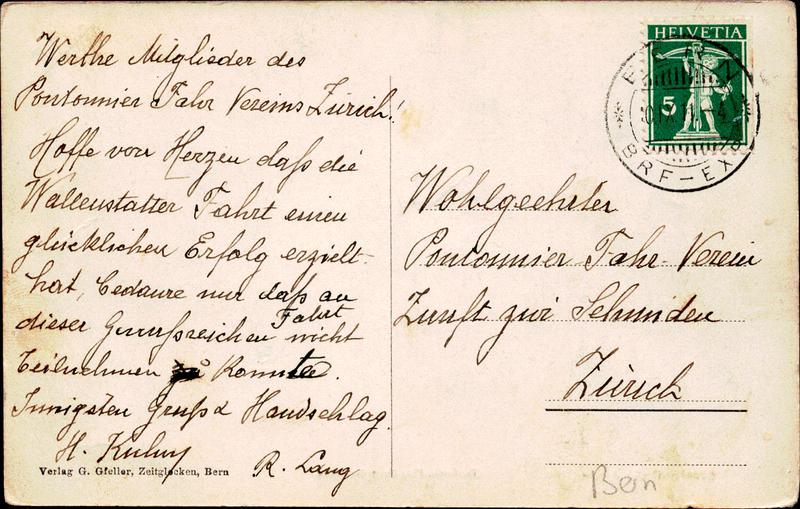 Werthe Mitglieder des
Pontonnier Fahr Vereins Zürich!
Hoffe von Herzen daß die
Wallenstatter Fahrt einen
glücklichen Erfolg erzielt
hat, bedaure nur daß an
dieser Genußreichen Fahrt nicht
teilnehmen konnte.
Innigsten Gruß & Handschlag
H. Kuhn
R. Lang
Verlag G. Gfeller, Zeitglocken, Bern
HELVETIA
5
BERN
BRF-EXP
Wohlgeehrter
Pontonnier Fahr-Verein
Zunft zur Schmiden
Zürich
Bern